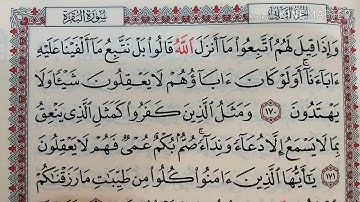 سورة البقرة
الجزء الثاني
وَإِذَا قِيلَ لَهُمُ اتَّبِعُوا مَا أَنزَلَ اللَّهُ قَالُوا بَلْ نَتَّبِعُ مَا أَلْفَيْنَا عَلَيْهِ
ءَابَاءَنَا أَوَلَوْ كَانَ ءَابَاؤُهُمْ لَا يَعْقِلُونَ شَيْئًا وَلَا
يَهْتَدُونَ ١٧٠ وَمَثَلُ الَّذِينَ كَفَرُوا كَمَثَلِ الَّذِي يَنْعِقُ
بِمَا لَا يَسْمَعُ إِلَّا دُعَاءً وَنِدَاءً صُمٌّ بُكْمٌ عُمْيٌ فَهُمْ لَا يَعْقِلُونَ
١٧١ يَا أَيُّهَا الَّذِينَ ءَامَنُوا كُلُوا مِن طَيِّبَاتِ مَا رَزَقْنَاكُمْ